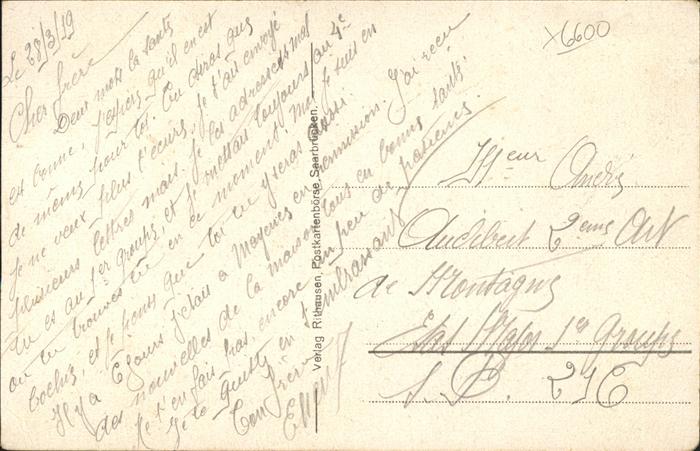 Le 28/3/19
Cher frère
Deux mots la santé
est bonne, j'espère qu'il en est
de même pour toi. Tu diras que
je ne veux plus t'écrire, je t'ai envoyé
plusieurs lettres mais je les adressais
tu es au 1er groupe, et je mettais toujours au 4e
ou tu trouves tu en ce moment, moi je suis en
bochie, et je pense que toi tu y seras aussi
Il y a 6 jours j'étais à Mayence en permission. J'ai reçu
des nouvelles de la maison tous en bonne santé.
Ne t'en fais pas encore un peu de patience.
Je te quitte en t'embrassant
Ton frère
Verlag Rithausen, Postkartenbörse, Saarbrücken.
X6600
Mr André
Audebert 2eme Art
de Montagne
Etat Major 1er Groupe
S. P. 216